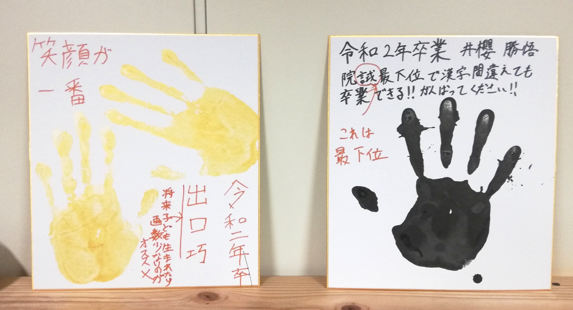 笑顔が
一番
令和二年卒
出口巧
将来子ども生まれたなら
画数少ないのが
オススメ
令和2年卒業 井櫻 勝悟
院試最下位で漢字間違えても
卒業できる!! がんばってください!!
これは
最下位